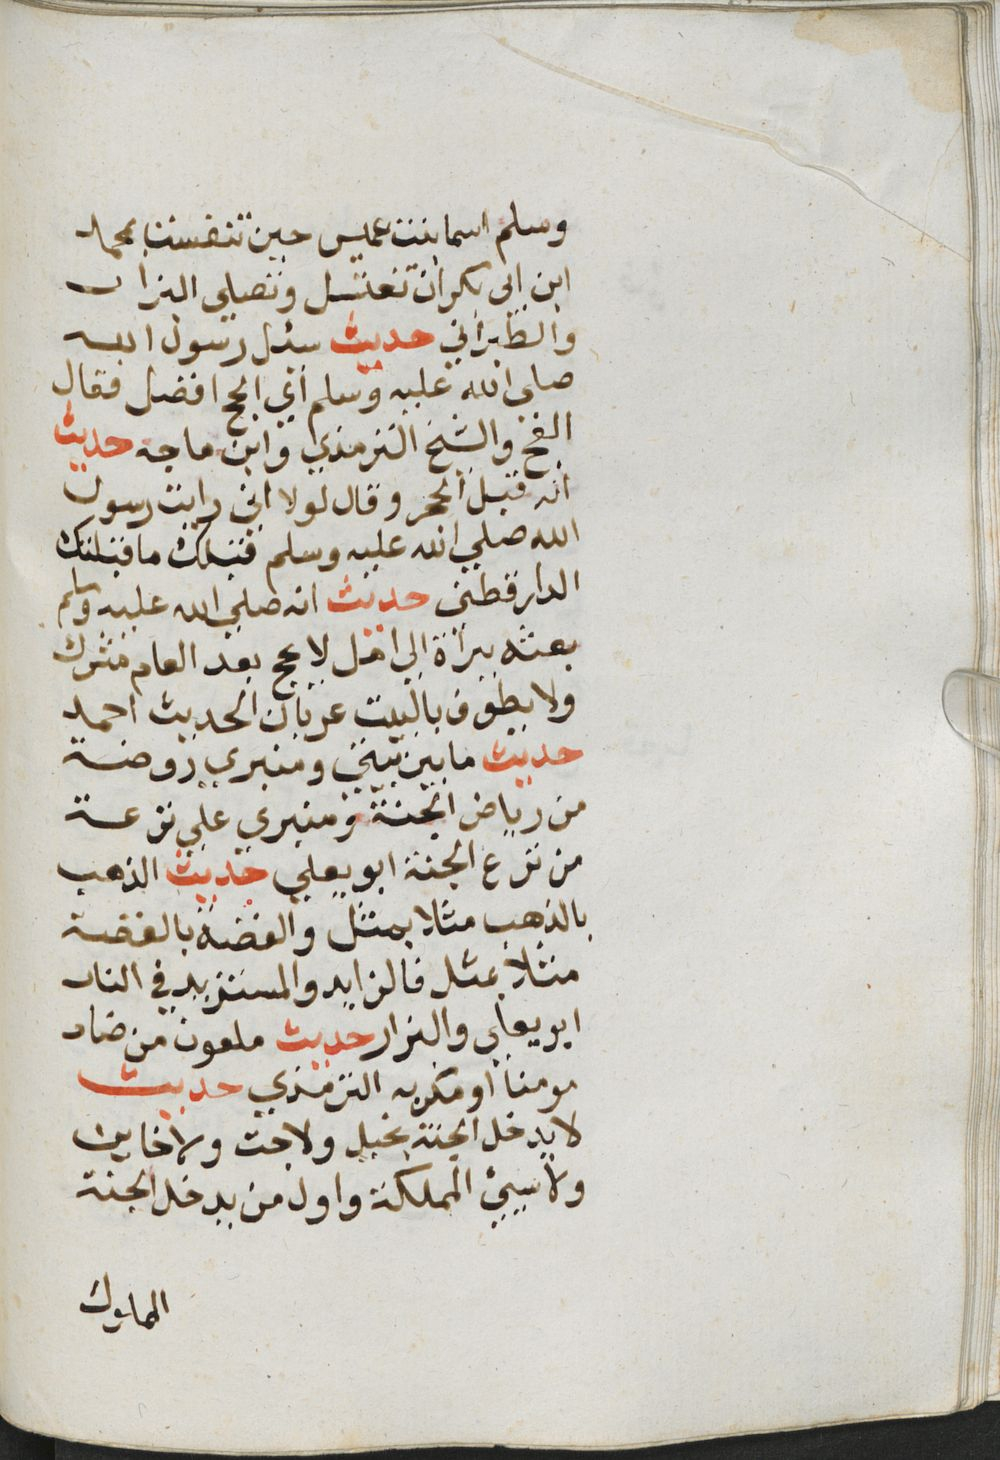 وسلم اسما بنت عميس حين تنفست بمحمد
ابن ابى بكر ان تغتسل وتصلي البزار
والطبراني حديث سئل رسول الله
صلي الله عليه وسلم اي الحج افضل فقال
العج والثج الترمذي وابن ماجه حديث
انه قبل الحجر وقال لولا اني رايت رسول
الله صلي الله عليه وسلم قبلك ما قبلتك
الدارقطني حديث انه صلي الله عليه وسلم
بعثه ببرأة الي اهل لا يحج بعد العام مشرك
ولا يطوف بالبيت عريان الحديث احمد
حديث ما بين بيتي ومنبري روضة
من رياض الجنة ومنبري علي ترعة
من ترع الجنة ابو يعلي حديث الذهب
بالذهب مثلا بمثل والفضة بالفضة
مثلا بمثل فالزايد والمستزيد في النار
ابو يعلي والبزار حديث ملعون من ضار
مومنا او مكر به الترمذي حديث
لا يدخل الجنة بخيل ولا خب ولا خاين
ولا سيئ الملكة واول من يدخل الجنة
المملوك